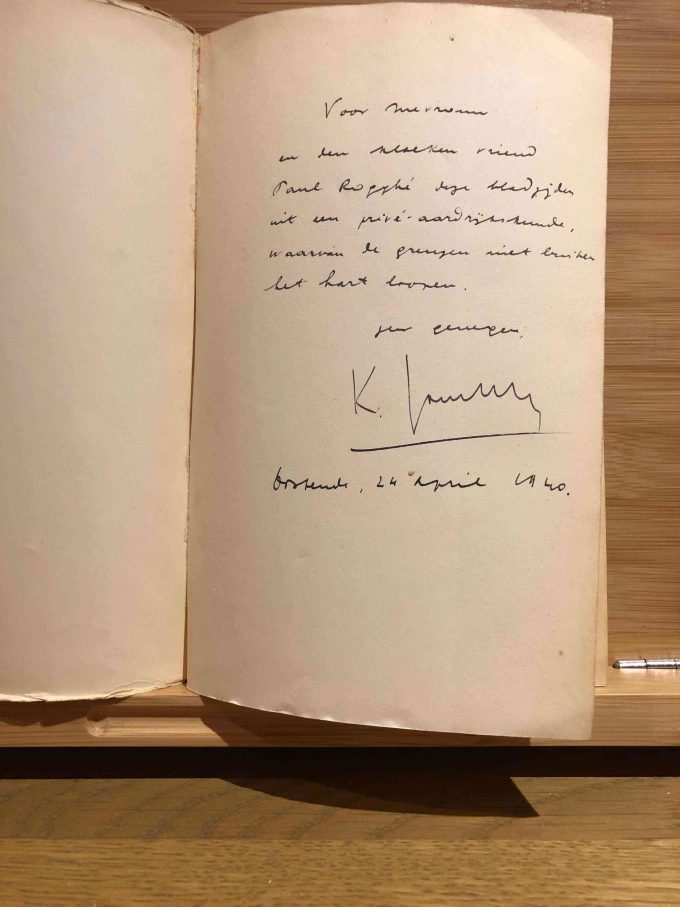 Voor mevrouw
en den kloeken vriend
Paul Rogghé deze bladzijden
uit een privé-aardrijkskunde,
waarvan de grenzen niet buiten
het hart loopen.
zeer genegen,
K. Jonckheere
Oostende, 24 April 1940.